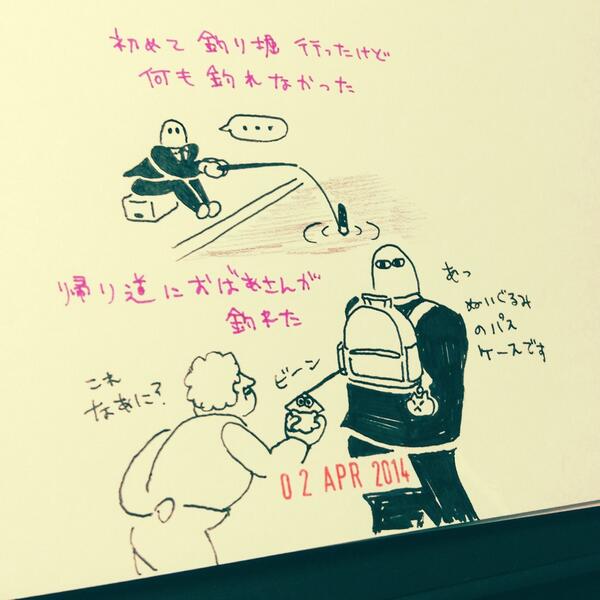 初めて 釣り堀 行ったけど
何も釣れなかった
・・・
帰り道におばあさんが
釣れた
あっ
ぬいぐるみ
のパス
ケースです
ビーン
これ
なあに?
02 APR 2014